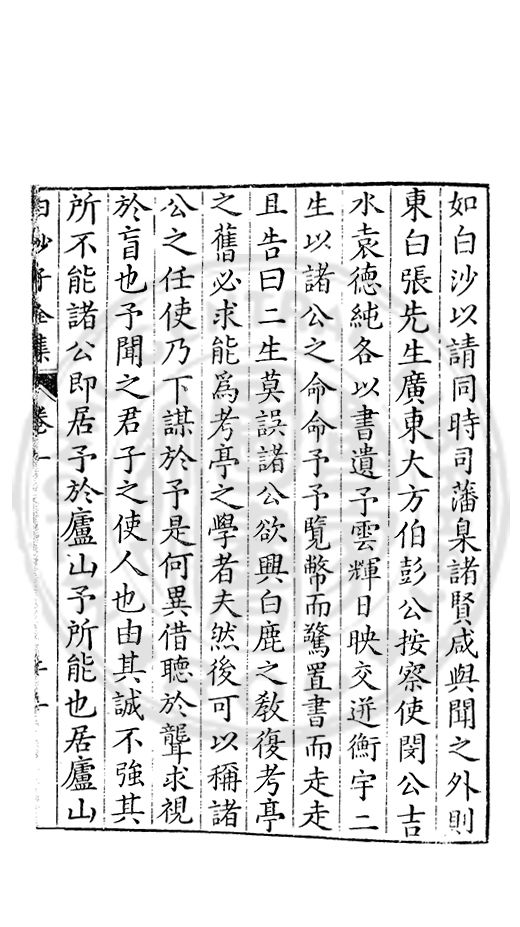 如白沙以請同時司藩臬諸賢咸與聞之外則
東白張先生廣東大方伯彭公按察使閔公吉
水袁德純各以書遺予雲輝日映交迸衡宇二
生以諸公之命命予予覽幣而驚置書而走走
且告曰二生莫誤諸公欲興白鹿之教復考亭
之舊必求能爲考亭之學者夫然後可以稱諸
公之任使乃下謀於予是何異借聽於聾求視
於盲也予聞之君子之使人也由其誠不強其
所不能諸公即居予於廬山予所能也居廬山
白沙子全集 卷一